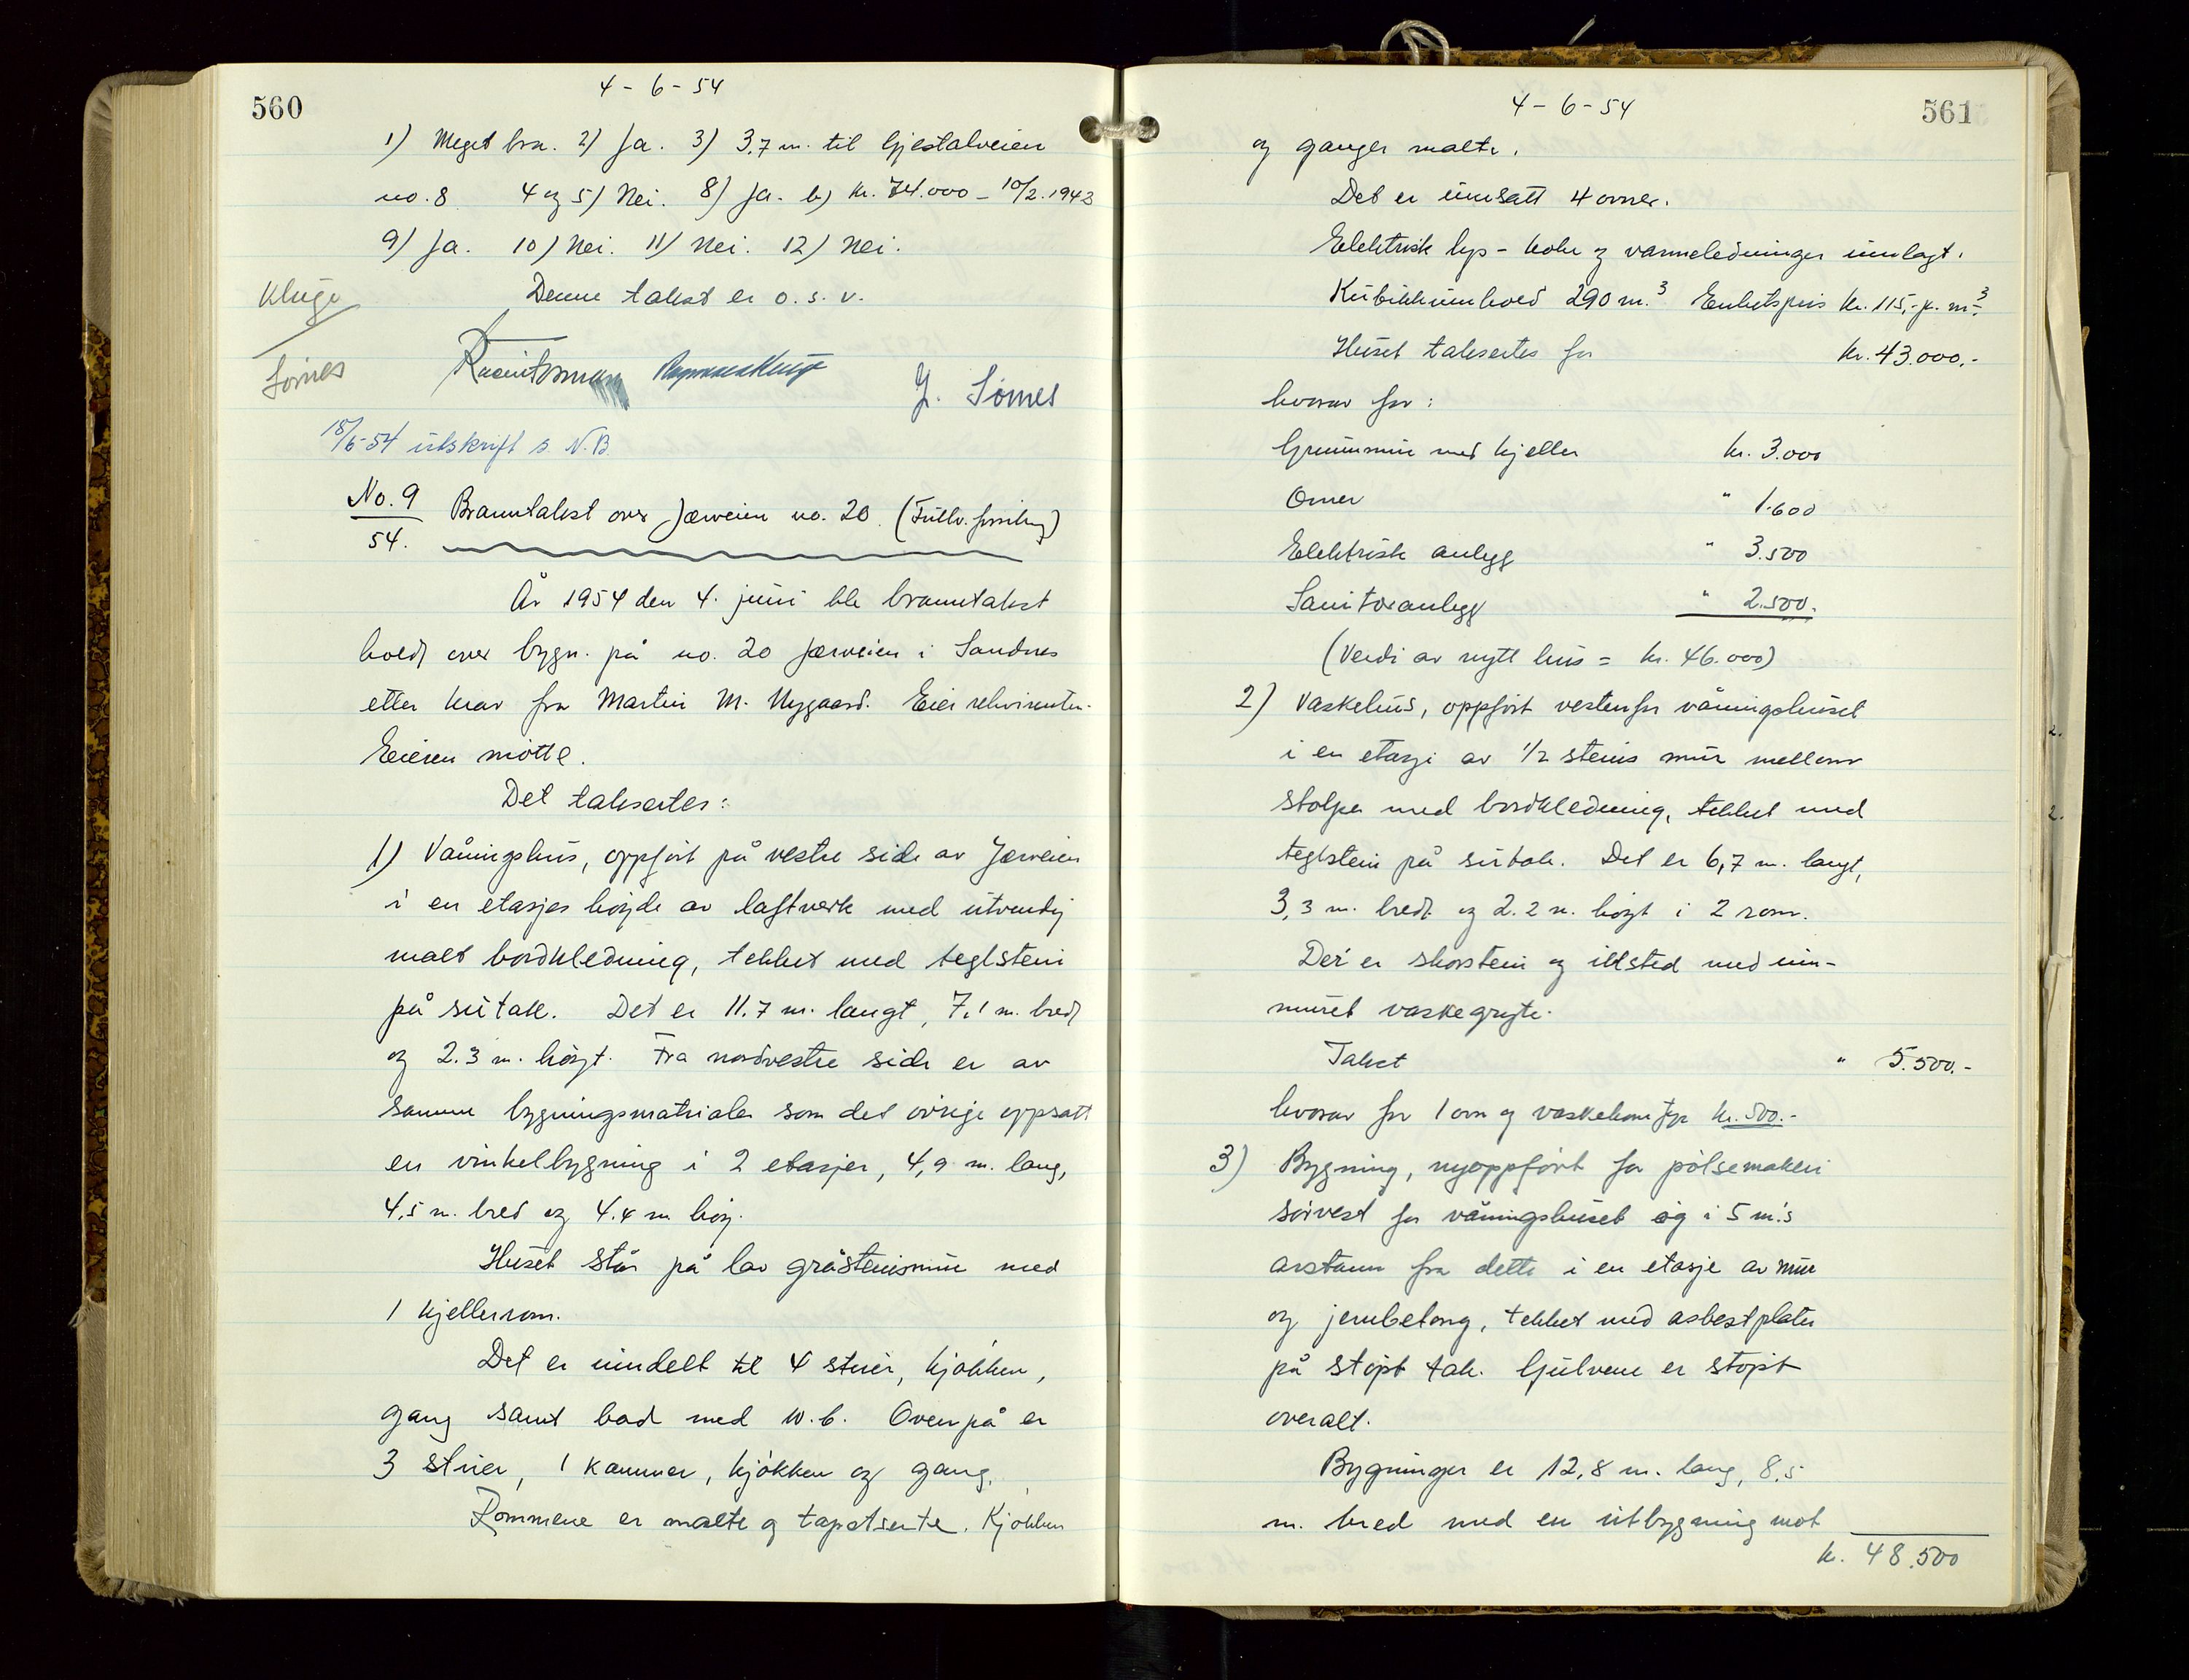 560
4-6-54
1) Meget bra. 2) Ja. 3) 3,7 m. til Gjestalveien
no. 8 4 og 5) Nei. 8) Ja. b) Kr. 74.000 - 10/2.1943
9) Ja. 10) Nei. 11) Nei. 12) Nei.
Kluge
Denne takst er o. s. v.
Sömes
J. Sömes
18/6-54 utskrift s. N.B.
No. 9
54.
Branntakst over Jærveien no. 20. (Fullv. forsikring)
År 1954 den 4. juni ble branntakst
holdt over bygn. på no. 20 Jærveien i Sandnes
etter krav fra Martin M. Nygaard. Eier rekvirenten.
Eieren mötte.
Det takseres:
1) Våningshus, oppfört på vestre side av Jærveien
i en etasjes höyde av laftverk med utvendig
malt bordkledning, tekket med teglstein
på sutak. Det er 11.7 m. langt, 7.1 m. bredt
og 2.3 m. höyt. Fra nordvestre side er av
samme bygningsmatrialer som det övrige oppsatt
en vinkelbygning i 2 etasjer, 4,9 m. lang,
4,5 m. bred og 4.4 m höy.
Huset står på lav gråsteinsmur med
1 kjellerrom.
Det er inndelt til 4 stuer, kjökken,
gang samt bad med w.c. Ovenpå er
3 stuer, 1 kammer, kjökken og gang.
Rommene er malte og tapetserte. Kjökken
4-6-54
561
og ganger malte.
Det er innsatt 4 ovner.
Elektrisk lys- koke og varmeledninger innlagt.
Kubikkinnhold 290 m.³ Enhetspris kr. 115,- p. m³.
Huset takseres for kr. 43.000.-
hvorav for:
Grunnmur med kjeller kr. 3.000
Ovner " 1.600
Elektrisk anlegg " 3.500
Sanitæranlegg " 2.500.
(Verdi av nytt hus = kr. 46.000)
2) Vaskehus, oppfört vestenfor våningshuset
i en etasje av 1/2 steins mur mellom
stolper med bordkledning, tekket med
teglstein på sutak. Det er 6,7 m. langt,
3,3 m. bredt og 2.2 m. höyt i 2 rom.
Der er skorstein og illsted med inn-
muret vaskegryte.
Takst " 5.500.-
hvorav for 1 ovn og kr. 500.-
3) Bygning, nyoppfört for pölsemakeri
sörvest for våningshuset og i 5 m's
avstann fra dette i en etasje av mur
og jernbetong, tekket med asbestplater
på stöpt tak. Gulvene er stöpt
overalt.
Bygningen er 12,8 m. lang, 8,5
m. bred med en utbygning mot
k. 48.500